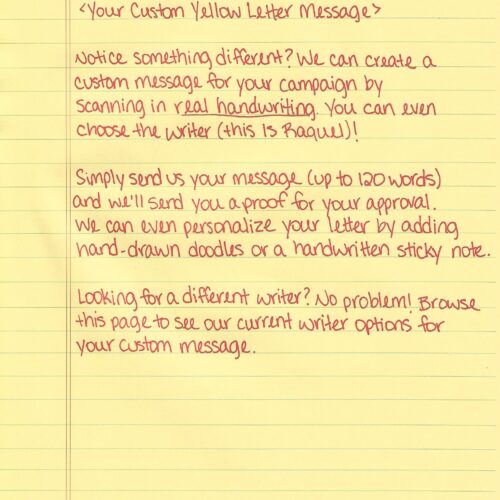 <Your Custom Yellow Letter Message>
Notice something different? We can create a
custom message for your campaign by
scanning in real handwriting. You can even
choose the writer (this is Raquel)!
Simply send us your message (up to 120 words)
and we'll send you a proof for your approval.
We can even personalize your letter by adding
hand-drawn doodles or a handwritten sticky note.
Looking for a different writer? No problem! Browse
this page to see our current writer options for
your custom message.